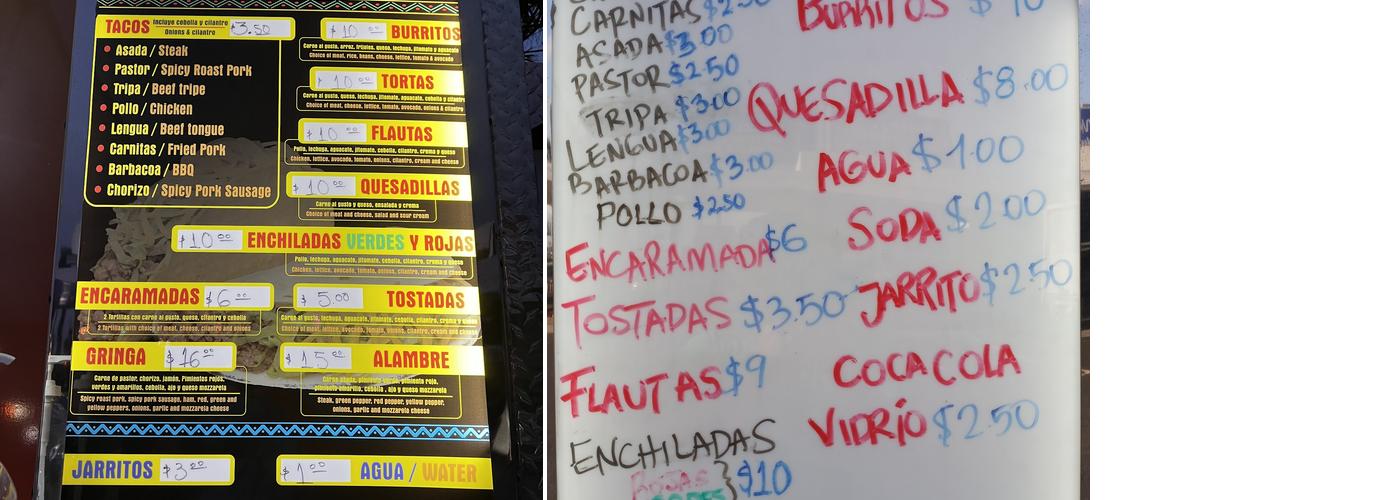 TACOS Incluye cebolla y cilantro
Onions & cilantro
$3.50
Asada / Steak
Pastor / Spicy Roast Pork
Tripa / Beef tripe
Pollo / Chicken
Lengua / Beef tongue
Carnitas / Fried Pork
Barbacoa / BBQ
Chorizo / Spicy Pork Sausage
$10.00 BURRITOS
Carne al gusto, arroz, frijoles, queso, lechuga, jitomate y aguacate
Choice of meat, rice, beans, cheese, lettice, tomato & avocado
$10.00 TORTAS
Carne al gusto, queso, lechuga, jitomate, aguacate, cebolla y cilantro
Choice of meat, cheese, lettice, tomato, avocado, onions & cilantro
$10.00 FLAUTAS
Pollo, lechuga, aguacate, jitomate, cebolla, cilantro, crema y queso
Chicken, lettice, avocado, tomato, onions, cilantro, cream and cheese
$10.00 QUESADILLAS
Carne al gusto y queso, ensalada y crema
Choice of meat and cheese, salad and sour cream
$10.00 ENCHILADAS VERDES Y ROJAS
Pollo, lechuga, aguacate, jitomate, cebolla, cilantro, crema y queso
Chicken, lettice, avocado, tomato, onions, cilantro, cream and cheese
ENCARAMADAS $6.00
2 Tortillas con carne al gusto, queso, cilantro y cebolla
2 Tortillas with choice of meat, cheese, cilantro and onions
$5.00 TOSTADAS
Carne al gusto, lechuga, aguacate, jitomate, cebolla, cilantro, crema y queso
Choice of meat, lettice, avocado, tomato, onions, cilantro, cream and cheese
GRINGA $16.00
Carne de pastor, chorizo, jamón, Pimientos rojos,
verdes y amarillos, cebolla, ajo y queso mozzarela
Spicy roast pork, spicy pork sausage, ham, red, green and
yellow peppers, onions, garlic and mozzarela cheese
$15.00 ALAMBRE
Carne asada, pimiento verde, pimiento rojo,
pimiento amarillo, cebolla, ajo y queso mozzarela
Steak, green pepper, red pepper, yellow pepper,
onions, garlic and mozzarela cheese
JARRITOS $3.00
$1.00 AGUA / WATER
CARNITAS $2.50
ASADA $3.00
PASTOR $2.50
TRIPA $3.00
LENGUA $3.00
BARBACOA $3.00
POLLO $2.50
ENCARAMADA $6
TOSTADAS $3.50
FLAUTAS $9
ENCHILADAS
ROJAS
VERDES } $10
BURRITOS $10
QUESADILLA $8.00
AGUA $1.00
SODA $2.00
JARRITO $2.50
COCA COLA
VIDRÍO $2.50